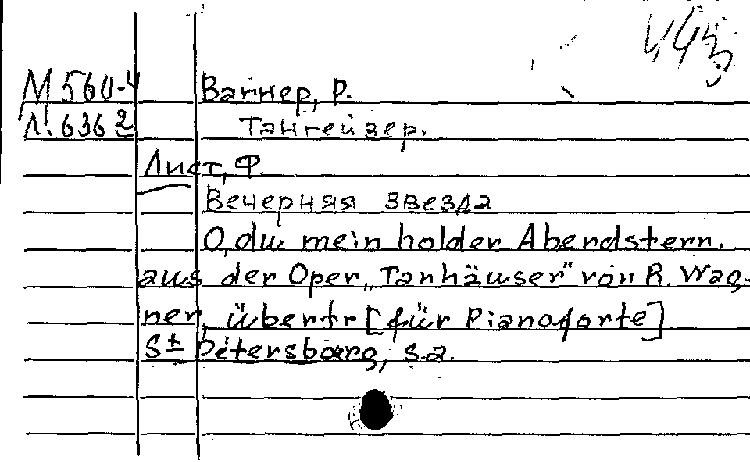 М 560-4 Вагнер, Р.
Л. 636 2 Тангейзер.
Лист, Ф.
Вечерняя звезда
O, du mein holder Abendstern.
aus der Oper „Tanhäuser" von R. Wag-
ner, übertr [für Pianoforte]
St Petersbourg, s.a.